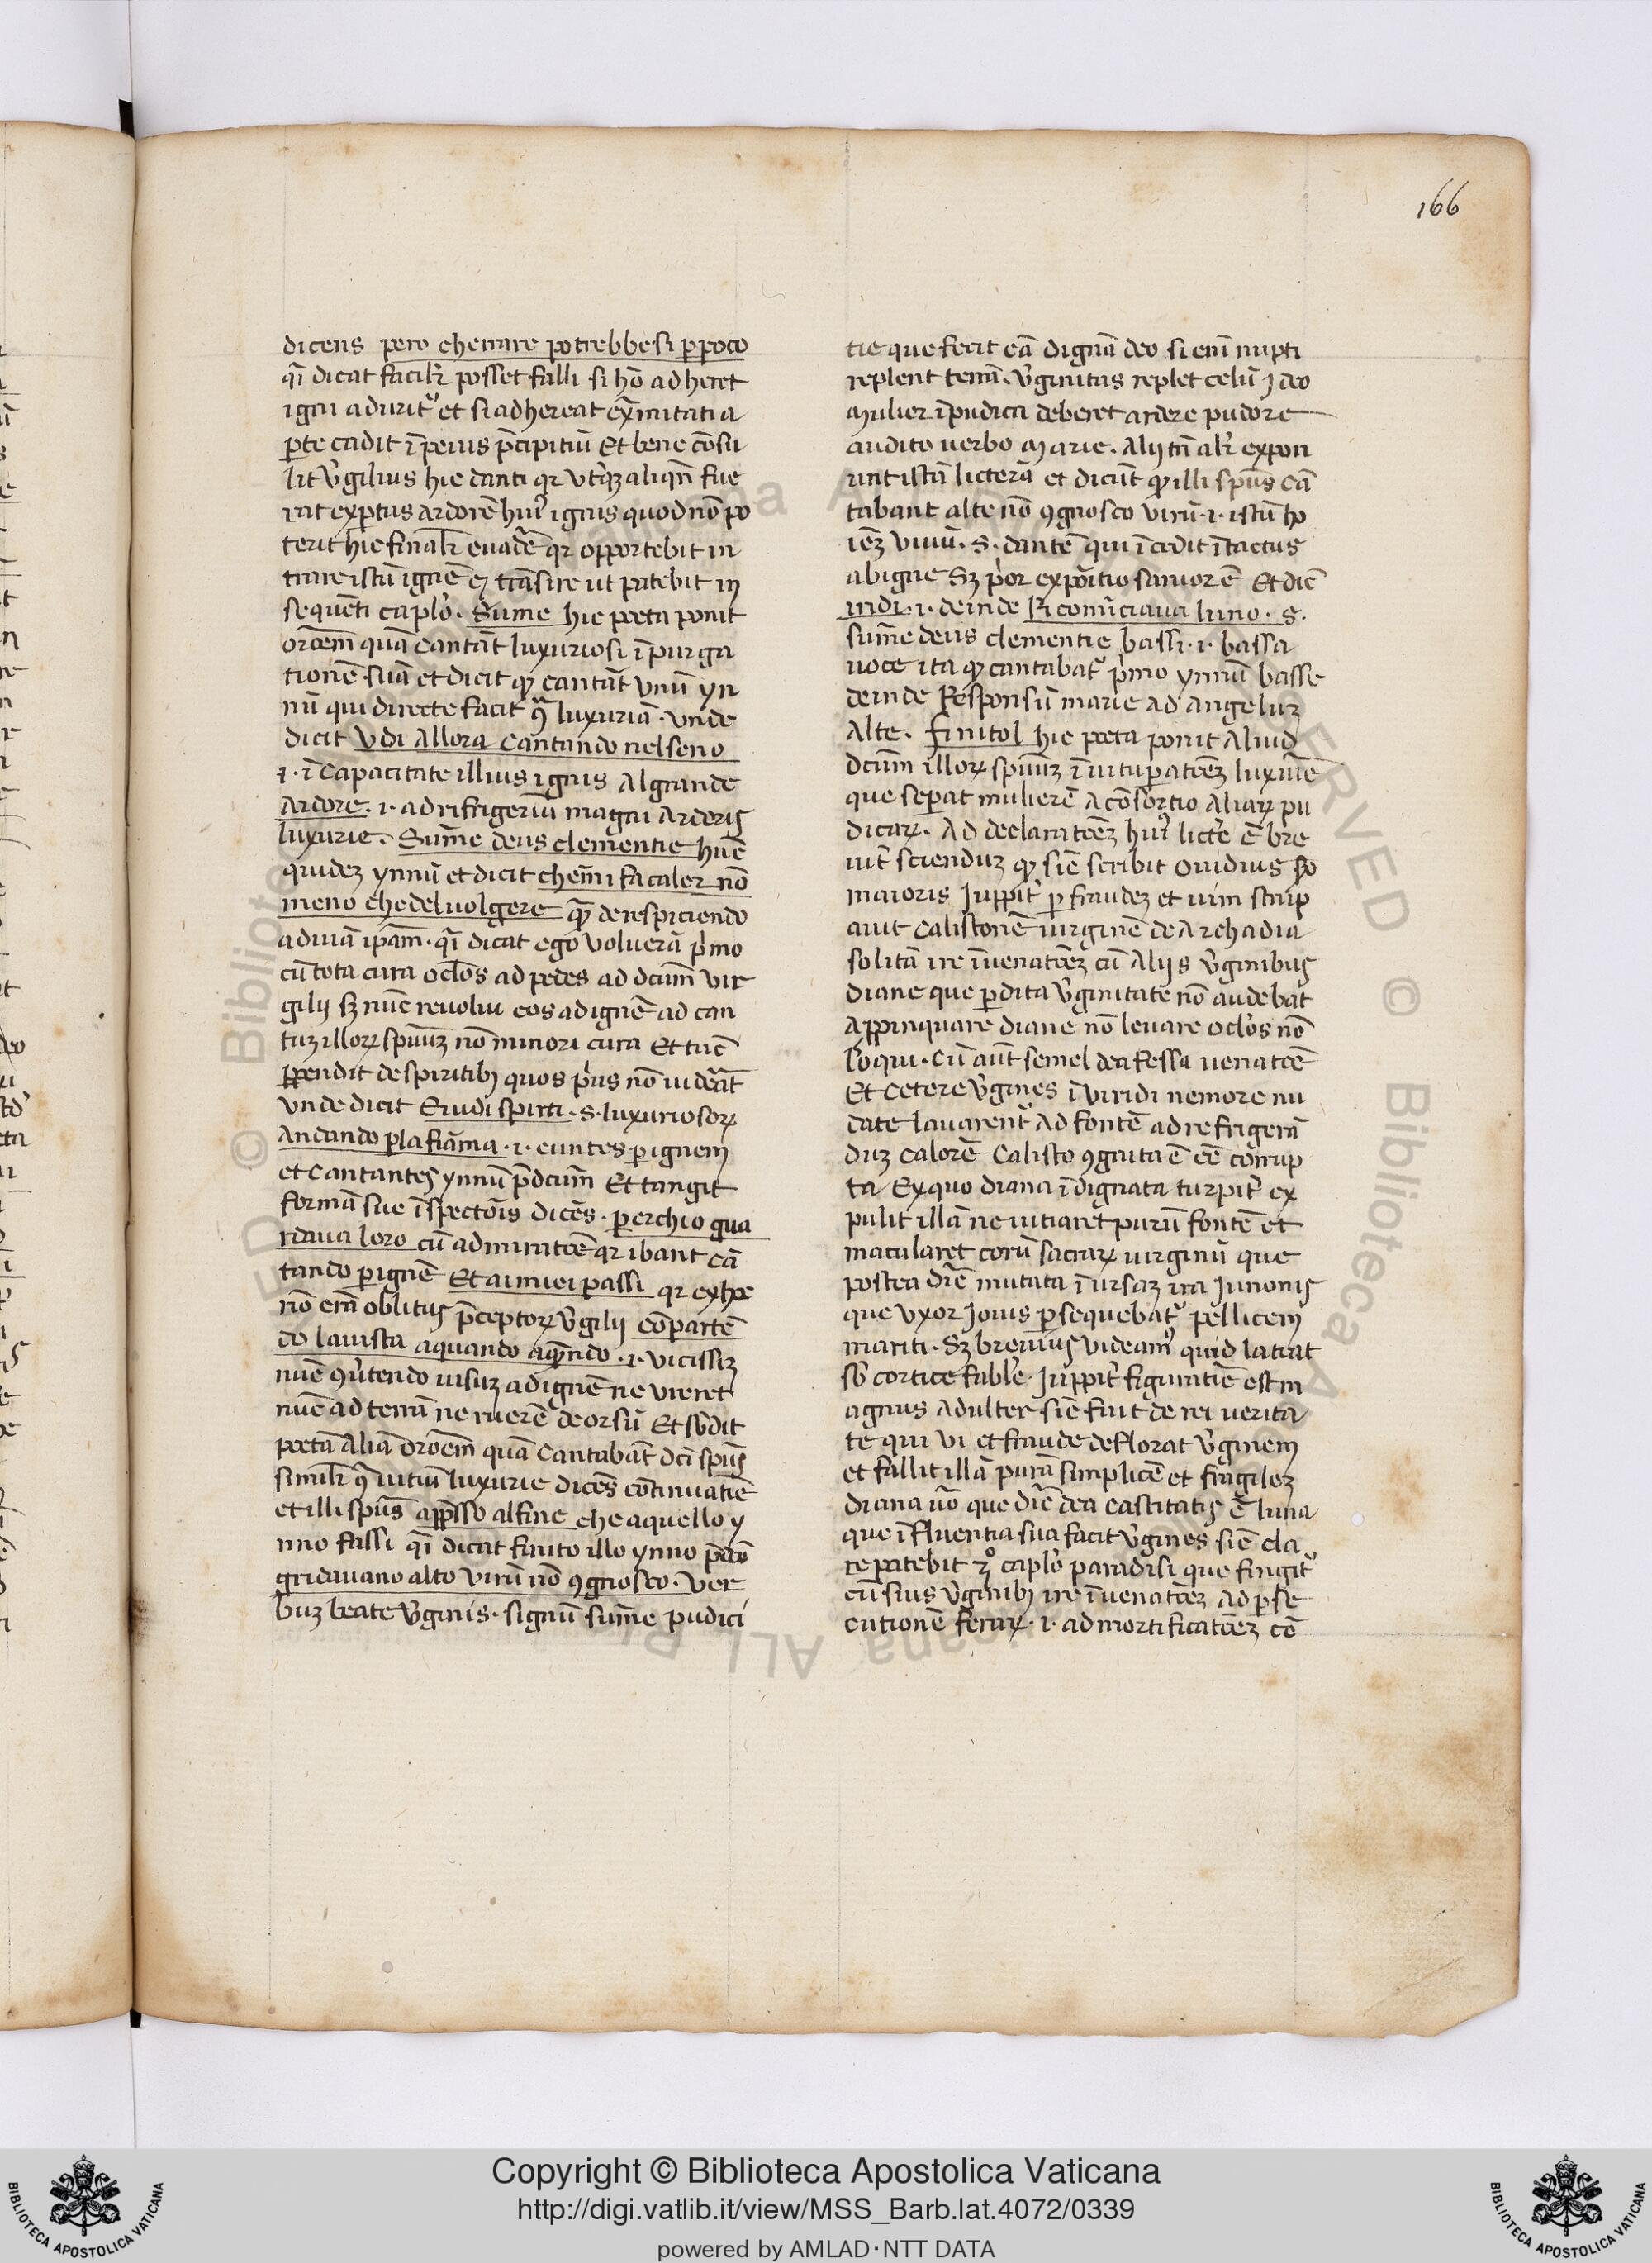 166
dicens pero che errare potrebbesi p̱ poco
qͥ dicat facilr̄ posset falli si hō adheret
igni adurit᷒ et si adhereat ext̄mitati a
p̱te cadit ī peius p̄cipitiū Et bene cōsu
lit v̓gilius hic danti qr vtiqꝫ aliqn̄ fue
rat exp̱tus ardorē hui᷒ ignis quod nō po
terit hic finalr̄ euadē qr opportebit in
trare istū ignē ⁊ trāsire ut patebit in
sequēti caplo̓. Sume hic poeta ponit
orōem quā cantāt luxuriosi ī purga
tionē suā et dicit ꝙ cantāt vnū yn
nū qui directe facit ꝯ̄ luxuriā. vnde
dicit vdi allora cantando nel seno
.i. ī capacitate illius ignis al grande
ardore .i. ad rifrigeriū magni ardoris
luxurie. Sūme deus clementie hūc
quidez ynnū et dicit che mi fa caler nō
meno che del uolgere q̄ de respiciendo
ad uiā ip̄am. qͥ dicat ego voluerā p̓mo
cū tota cura oclōs ad pedes ad dcūm vir
gilij sꝫ nūc reuolui eos ad ignē ad can
tuz illoꝝ spūuꝫ nō minori cura Et tūc
ꝓpendit de spiritibꝫ quos p̓us nō uideāt
vnde dicit E uidi spirti .s. luxuriosoꝝ
andando p̱ la fiāma .i. euntes p̱ ignem
et cantantes ynnū p̄dcūm Et tangit
formā sue īspectōis dicēs. p̱ erchio gua
rdaua loro cū admiratōe qr ibant cā
tando p̱ ignē Et ai miei passi qr ex hoc
nō erā oblitus p̄ceptoꝝ v̓gilij cōpartē
do la uista a quando a q̄ndo .i. vicissiꝫ
nūc ꝯu̓tendo uisuꝫ ad ignē ne vreret᷒
nūc ad terrā ne ruerē deorsū Et sb̓dit
poeta aliā orōem quā cantabāt dcī spūs
similr̄ ꝯ̄ uitiū luxurie dicēs cōtinuatīe
et illi spūs app̄sso al fine che a quello y
nno fassi qͥ dicat finito illo ynno p̄dcō
gridauano alto virū nō ꝯgnosco. ver
buꝫ beate v̓ginis. signū sūme pudici
tie que fecit eā dignā deo si enī nupti
replent terrā. v̓ginitas replet celū iō deo
mulier īpudica deberet ardere pudore
audito uerbo marie. Alij tn̄ alr̄ expon
unt istā licterā et dicūt ꝙ illi spūs cā
tabant alte nō ꝯgnosco virū .i. istū ho
iēꝫ viuū .s. dantē qui īcedit ītactus
ab igne Sꝫ p̓or expōitio sanior ē Et dic̄
indi .i. deinde Ricomīciaua linno .s.
sūme deus clementie bassi .i. bassa
uoce ita ꝙ cantabat᷒ p̓mo ynnū basse
deinde Responsū marie ad angeluꝫ
alte. finitol hic poeta ponit aliud
dcūm illoꝝ spūuꝫ ī uitup̱atōeꝫ luxurie
que sep̱at mulierē a cōsortio aliaꝝ pu
dicaꝝ. Ad declaratōeꝫ hui᷒ lictr̄e ē bre
uit̓ sciendꝫ ꝙ sic̄ scribit ouidius so
maioris Juppit̓ p̱ fraudeꝫ et uim strup
auit calistonē uirginē de archadia
solitā ire ī uenatōeꝫ cū alijs v̓ginibus
diane que p̱dita v̓ginitate nō audebat
appinquare diane nō leuare oclo̓s nō
loqui. Cū aūt semel dea fessa uenatōe
Et cetere v̓gines ī viridi nemore nu
date lauarent᷒ ad fontē ad refrigerā
duꝫ calorē Calisto ꝯgnita ē eē corrup
ta Ex quo diana īdignata turpit̓ ex
pulit illā ne uitiaret purū fontē et
macularet corū sacraꝝ uirginū que
postea dic̄ mutata ī ursaꝫ ira Junonis
que vxor Jouis p̱sequebat᷒ pellicem
mariti. Sꝫ breuius videam᷒ quid lateat
sb̓ cortice fable̓. Juppit̓ figuratīe est m
agnus adulter sic̄ fuit de rei uerita
te qui vi et fraude deflorat v̓ginem
et fallit illā purā simplicē et fragileꝫ
diana ū̓o que dic̄ dea castitatis ē luna
que īfluentia sua facit v̓gines sic̄ cla
re patebit 2º caplo̓ paradisi que fingit᷒
cū suis v̓ginibꝫ ire ī uenatōeꝫ ad p̱se
cutionē feraꝝ .i. ad mortificatōeꝫ cō
Copyright © Biblioteca Apostolica Vaticana
http://digi.vatlib.it/view/MSS_Barb.lat.4072/0339
powered by AMLAD·NTT DATA